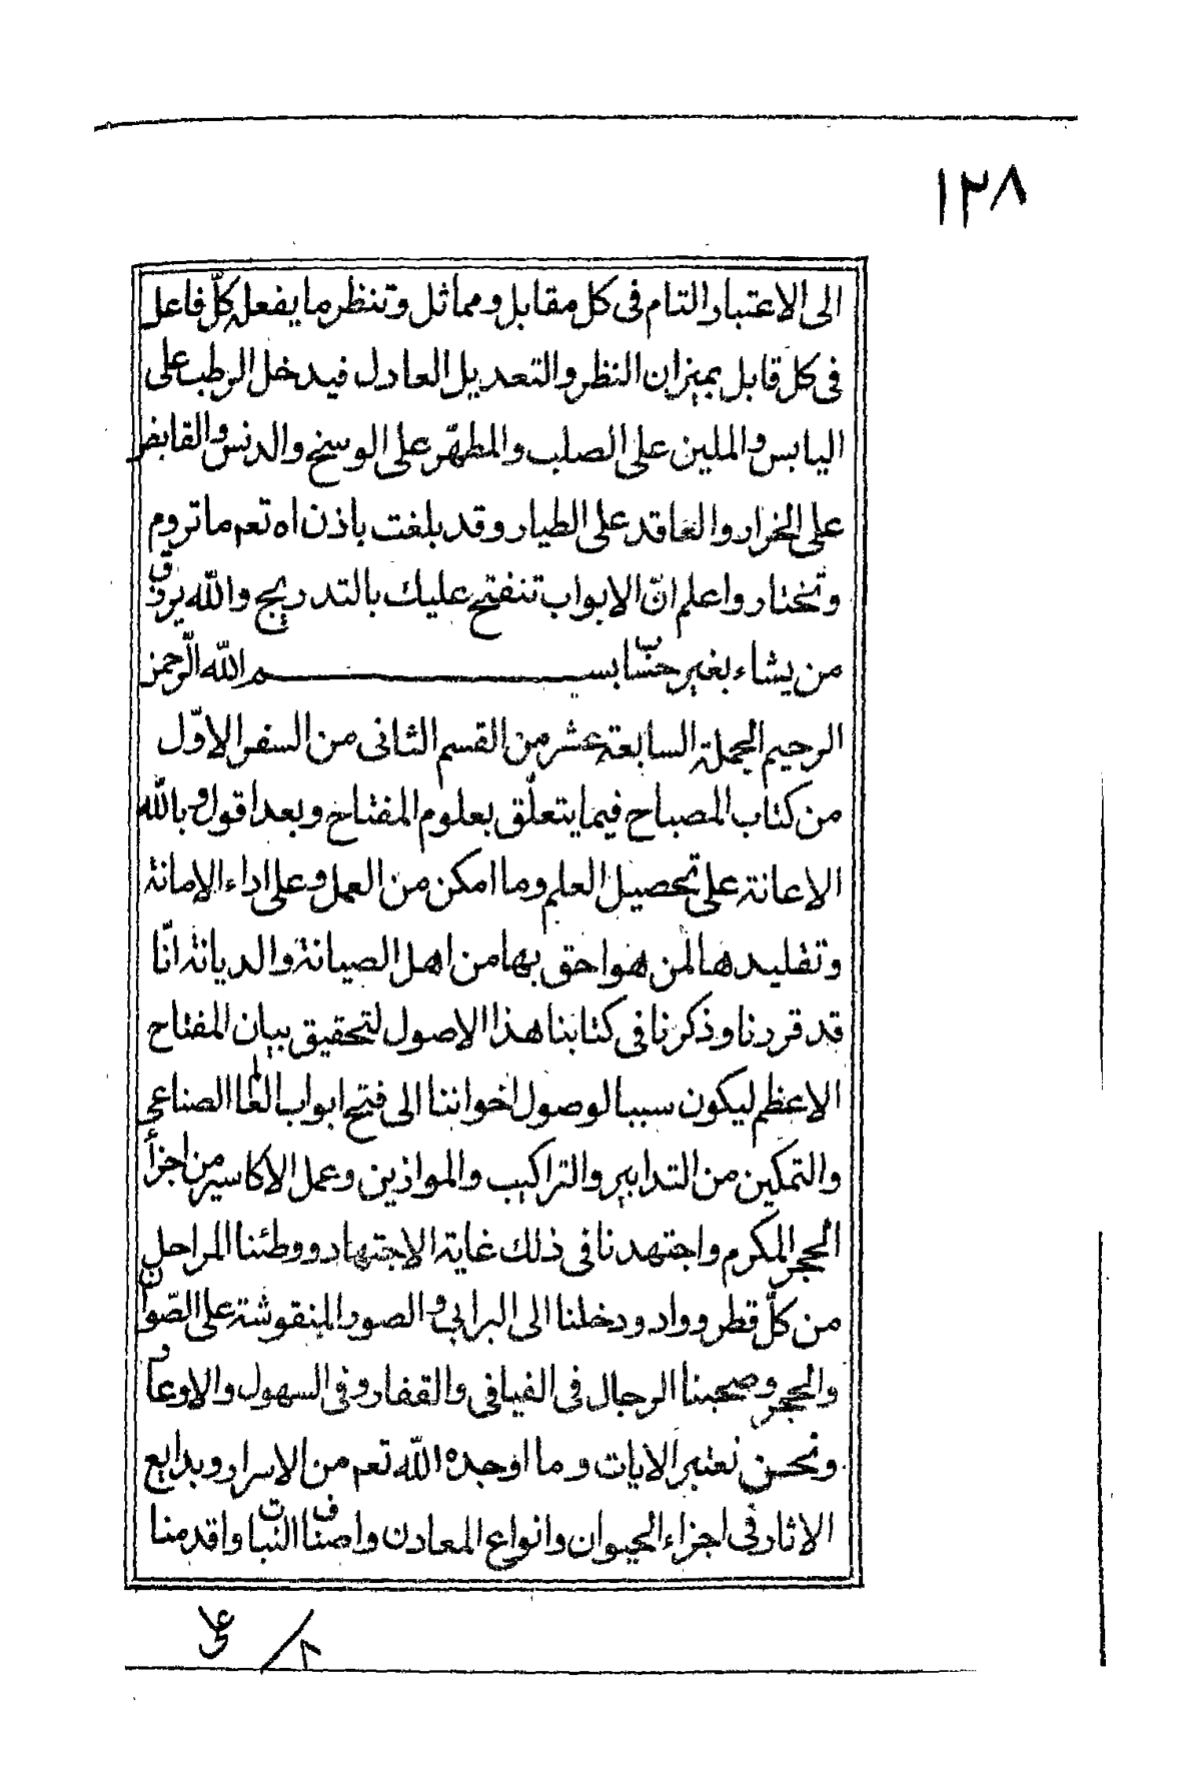 ١٢٨
الى الاعتبار التام فى كل مقابل ومماثل وتنظر ما يفعله كلّ فاعل
فى كل قابل بميزان النظر والتعديل العادل فيدخل الرطب على
اليابس والملين على الصلب والمطهّر على الوسخ والدنس والقابض
على الخرار والعاقد على الطيار وقد بلغت باذن اه تعم ما تروم
وتختار واعلم انّ الابواب تنفتح عليك بالتدريج والله يرزق
من يشاء بغير حساب بسم الله الرّحمن
الرحيم الجملة السابعة عشر من القسم الثانى من السفر الاوّل
من كتاب المصباح فيما يتعلّق بعلوم المفتاح وبعد اقول وبالله
الاعانة على تحصيل العلم وما امكن من العمل وعلى اداء الامانة
وتقليدها لمن هو احق بها من اهل الصيانة والديانة انّا
قد قررنا وذكرنا فى كتابنا هذا الاصول لتحقيق بيان المفتاح
الاعظم ليكون سببا لوصول اخواننا الى فتح ابواب العلم الصناعى
والتمكين من التدابير والتراكيب والموازين وعمل الاكاسير من اجزأ
الحجر المكرم واجتهدنا فى ذلك غاية الاجتهاد ووطئنا المراحل
من كلّ قطر وواد ودخلنا الى البرابى والصور المنقوشة على الصّوان
والحجر وصحبنا الرجال فى الفيافى والقفار وفى السهول والاوعار
ونحن نعتبر الايات وما اوجده الله تعم من الاسرار وبدايع
الاثار فى اجزاء الحيوان وانواع المعادن واصناف النبات واقدمنا
على